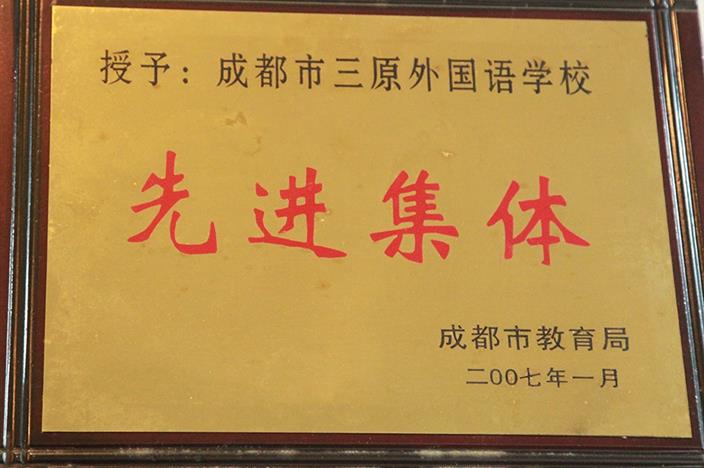 授予：成都市三原外国语学校
先进集体
成都市教育局
二00七年一月